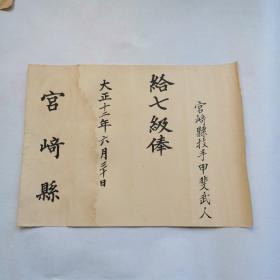 宮﨑縣技手甲斐武人
給七級俸
大正十二年六月三十日
宮﨑縣